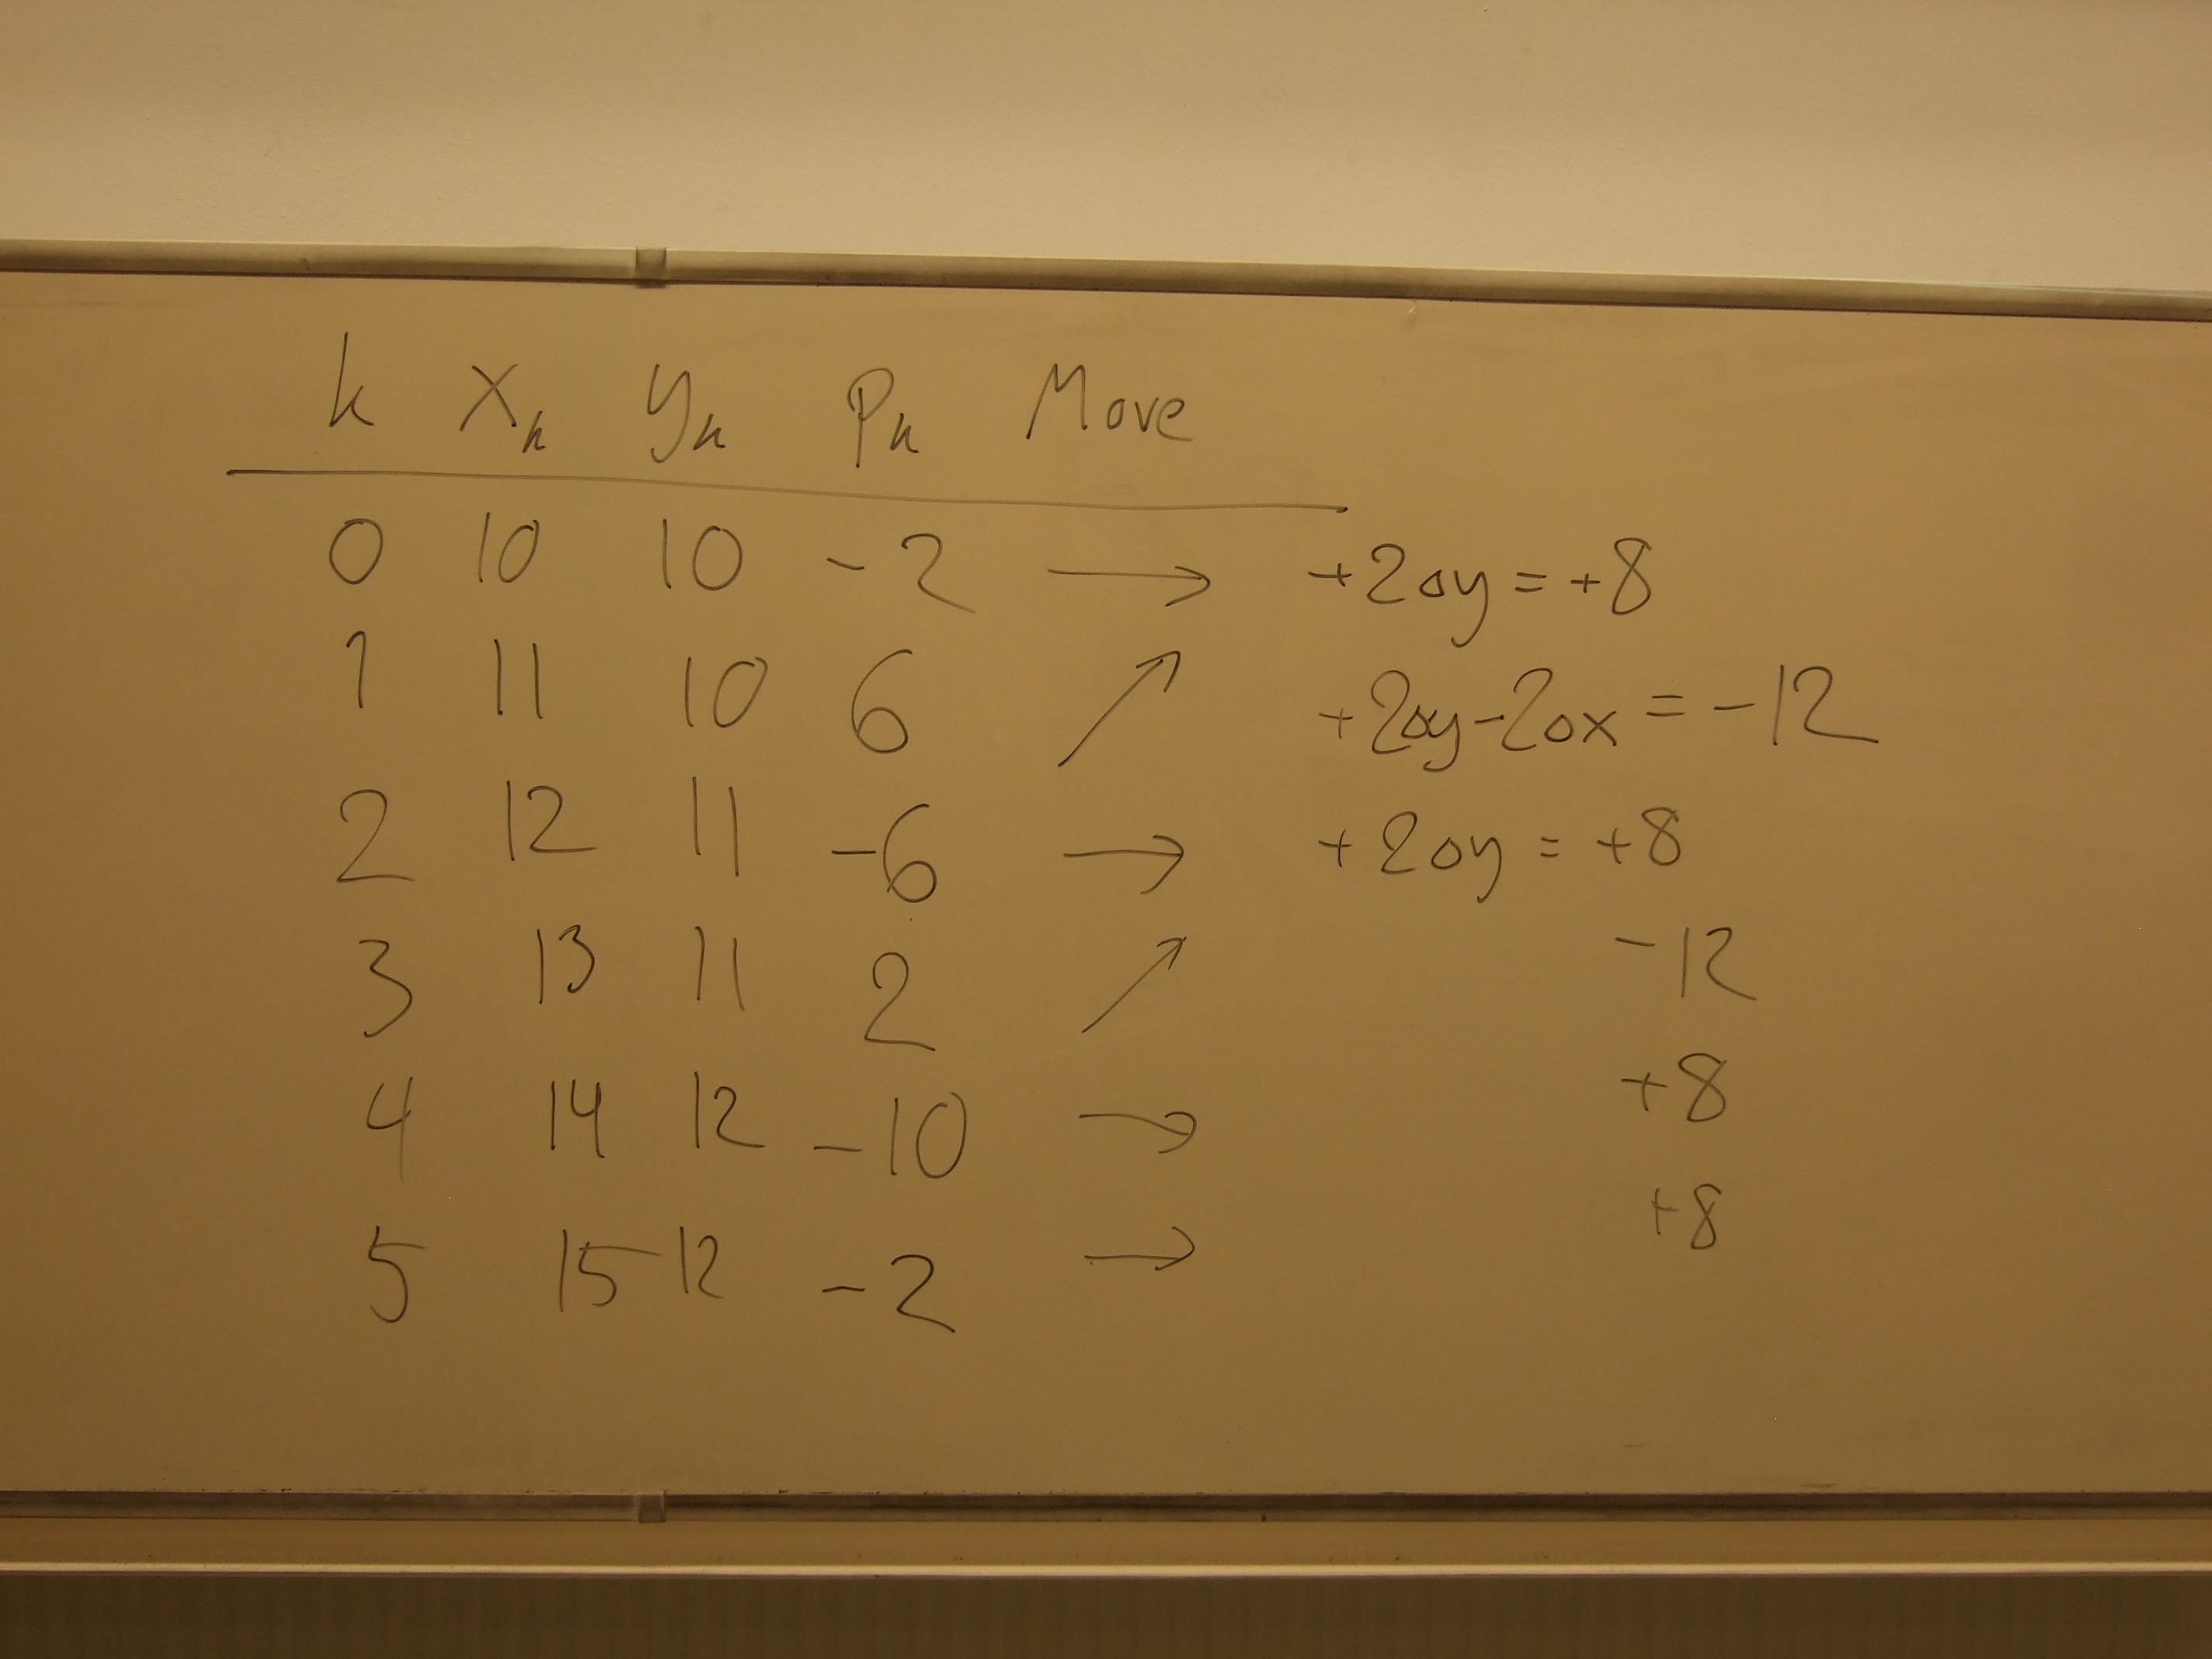 k xₖ yₖ pₖ Move
0 10 10 -2 → +2△y = +8
1 11 10 6 ↗ +2△y-2△x = -12
2 12 11 -6 → +2△y = +8
3 13 11 2 ↗ -12
4 14 12 -10 → +8
5 15 12 -2 → +8